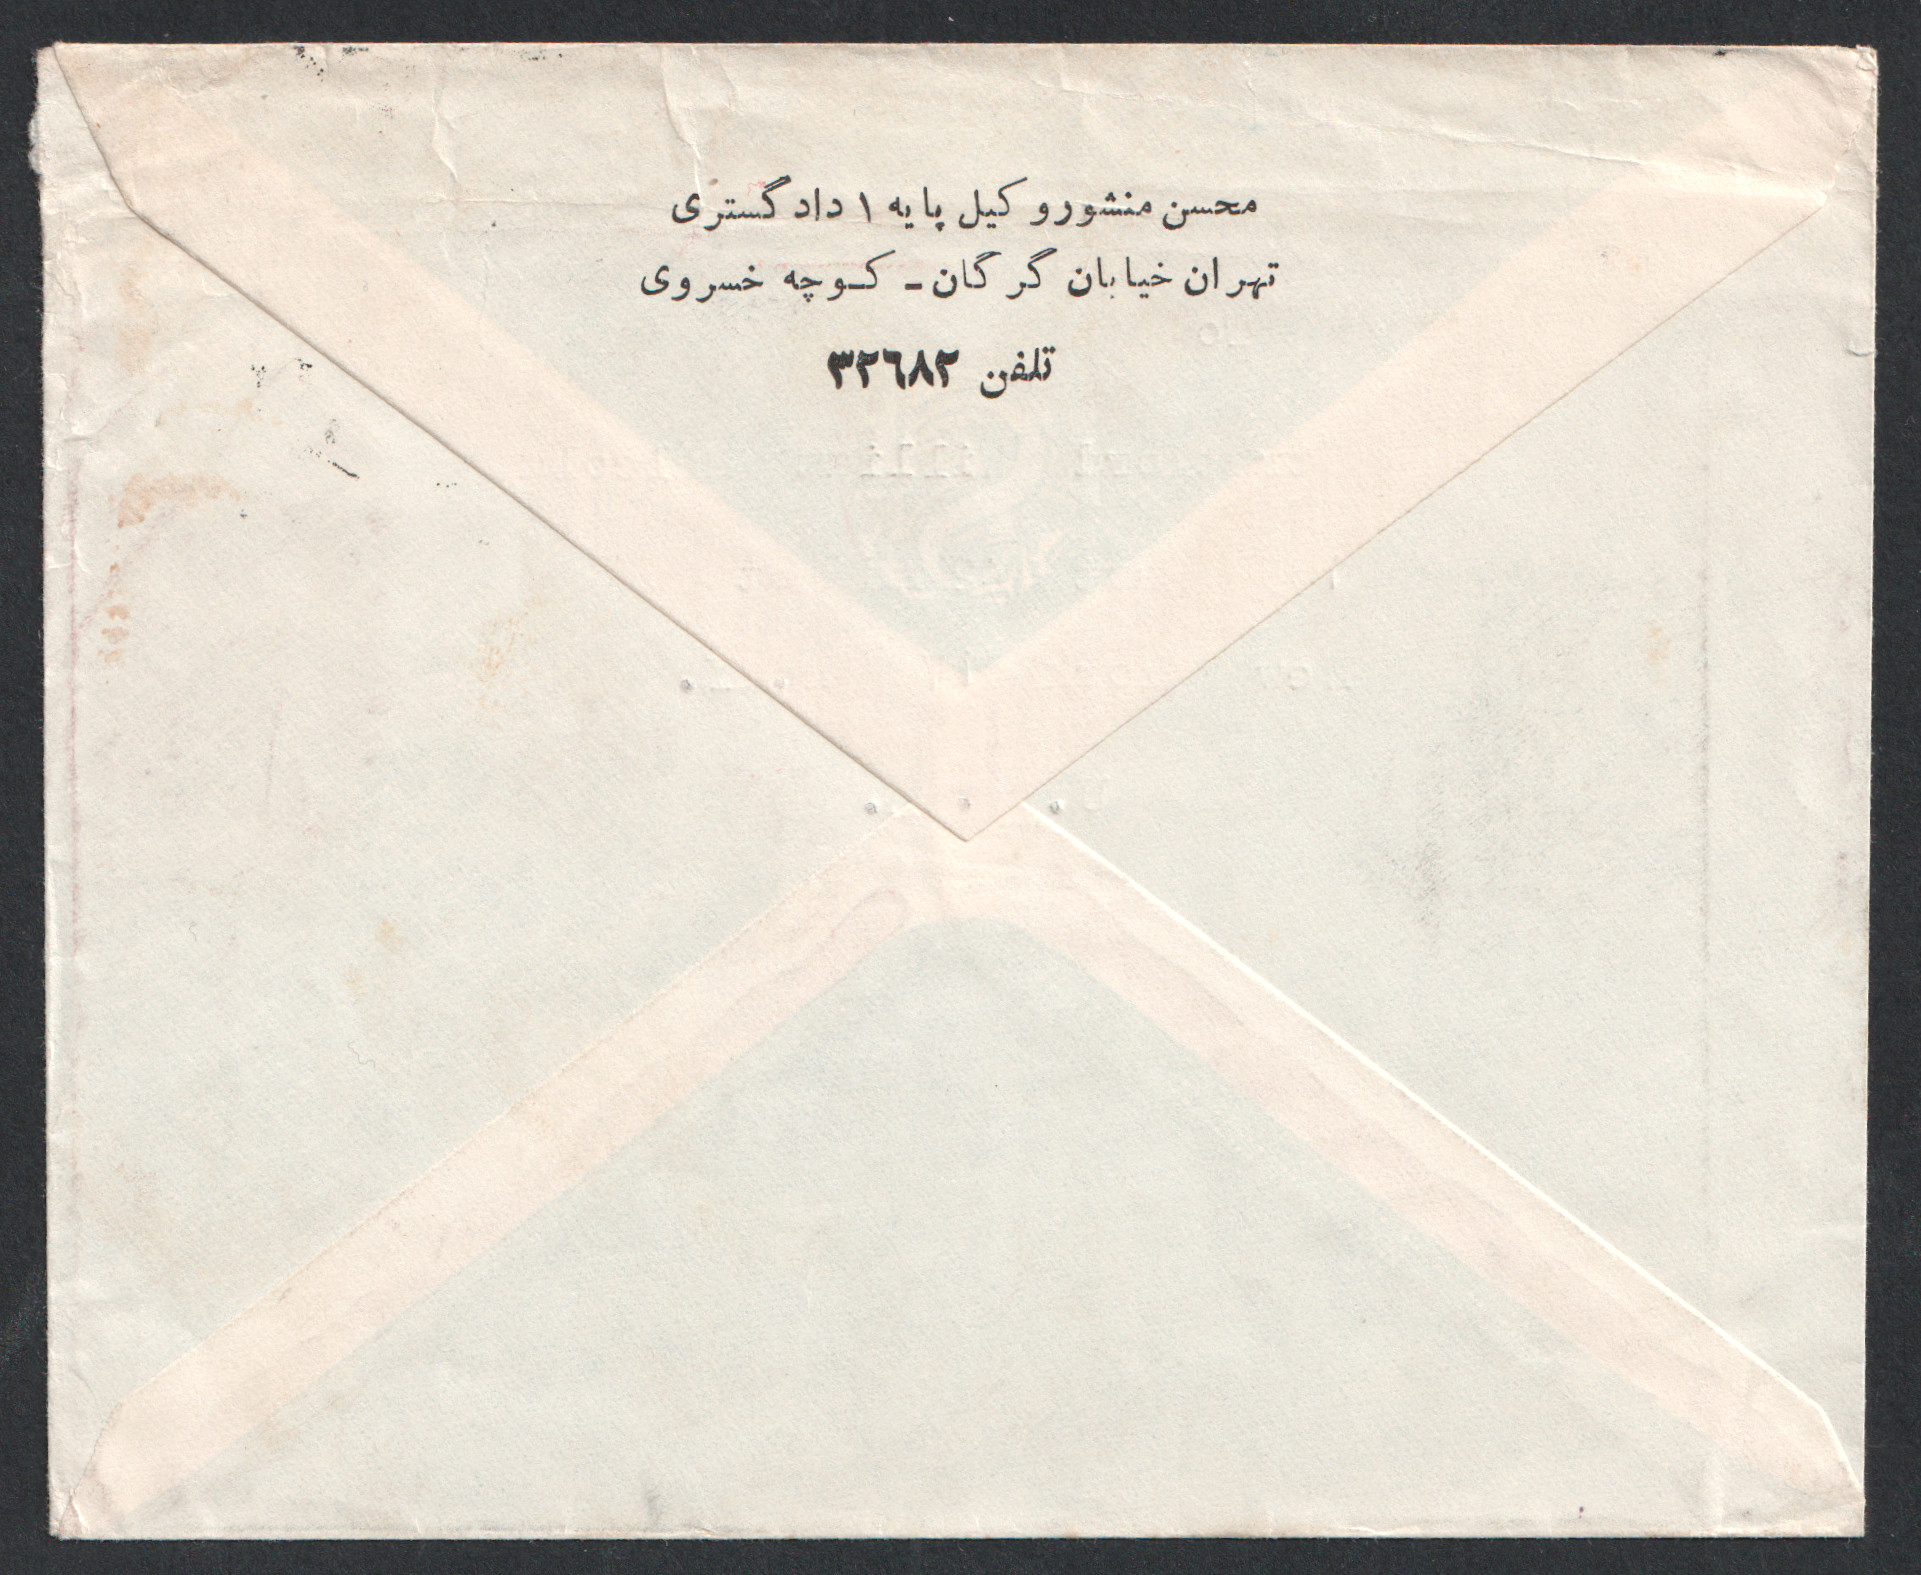 محسن منشورو کیل پایه ۱ دادگستری
تهران خیابان گرگان - کوچه خسروی
تلفن ۳۲٦۸۲